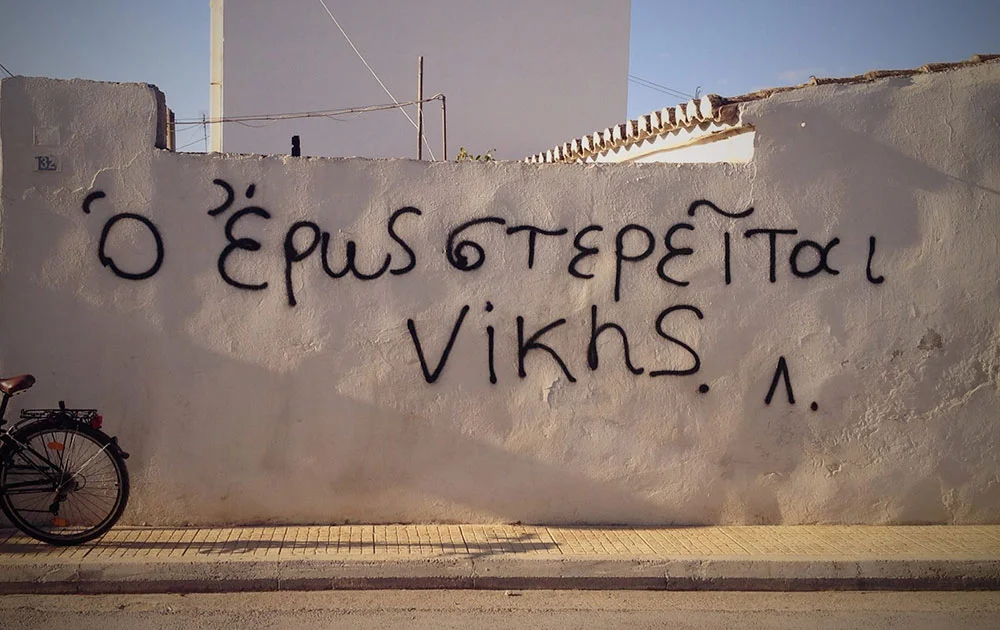 132
Ὁ Ἔρως στερεῖται
νίκης. Λ.